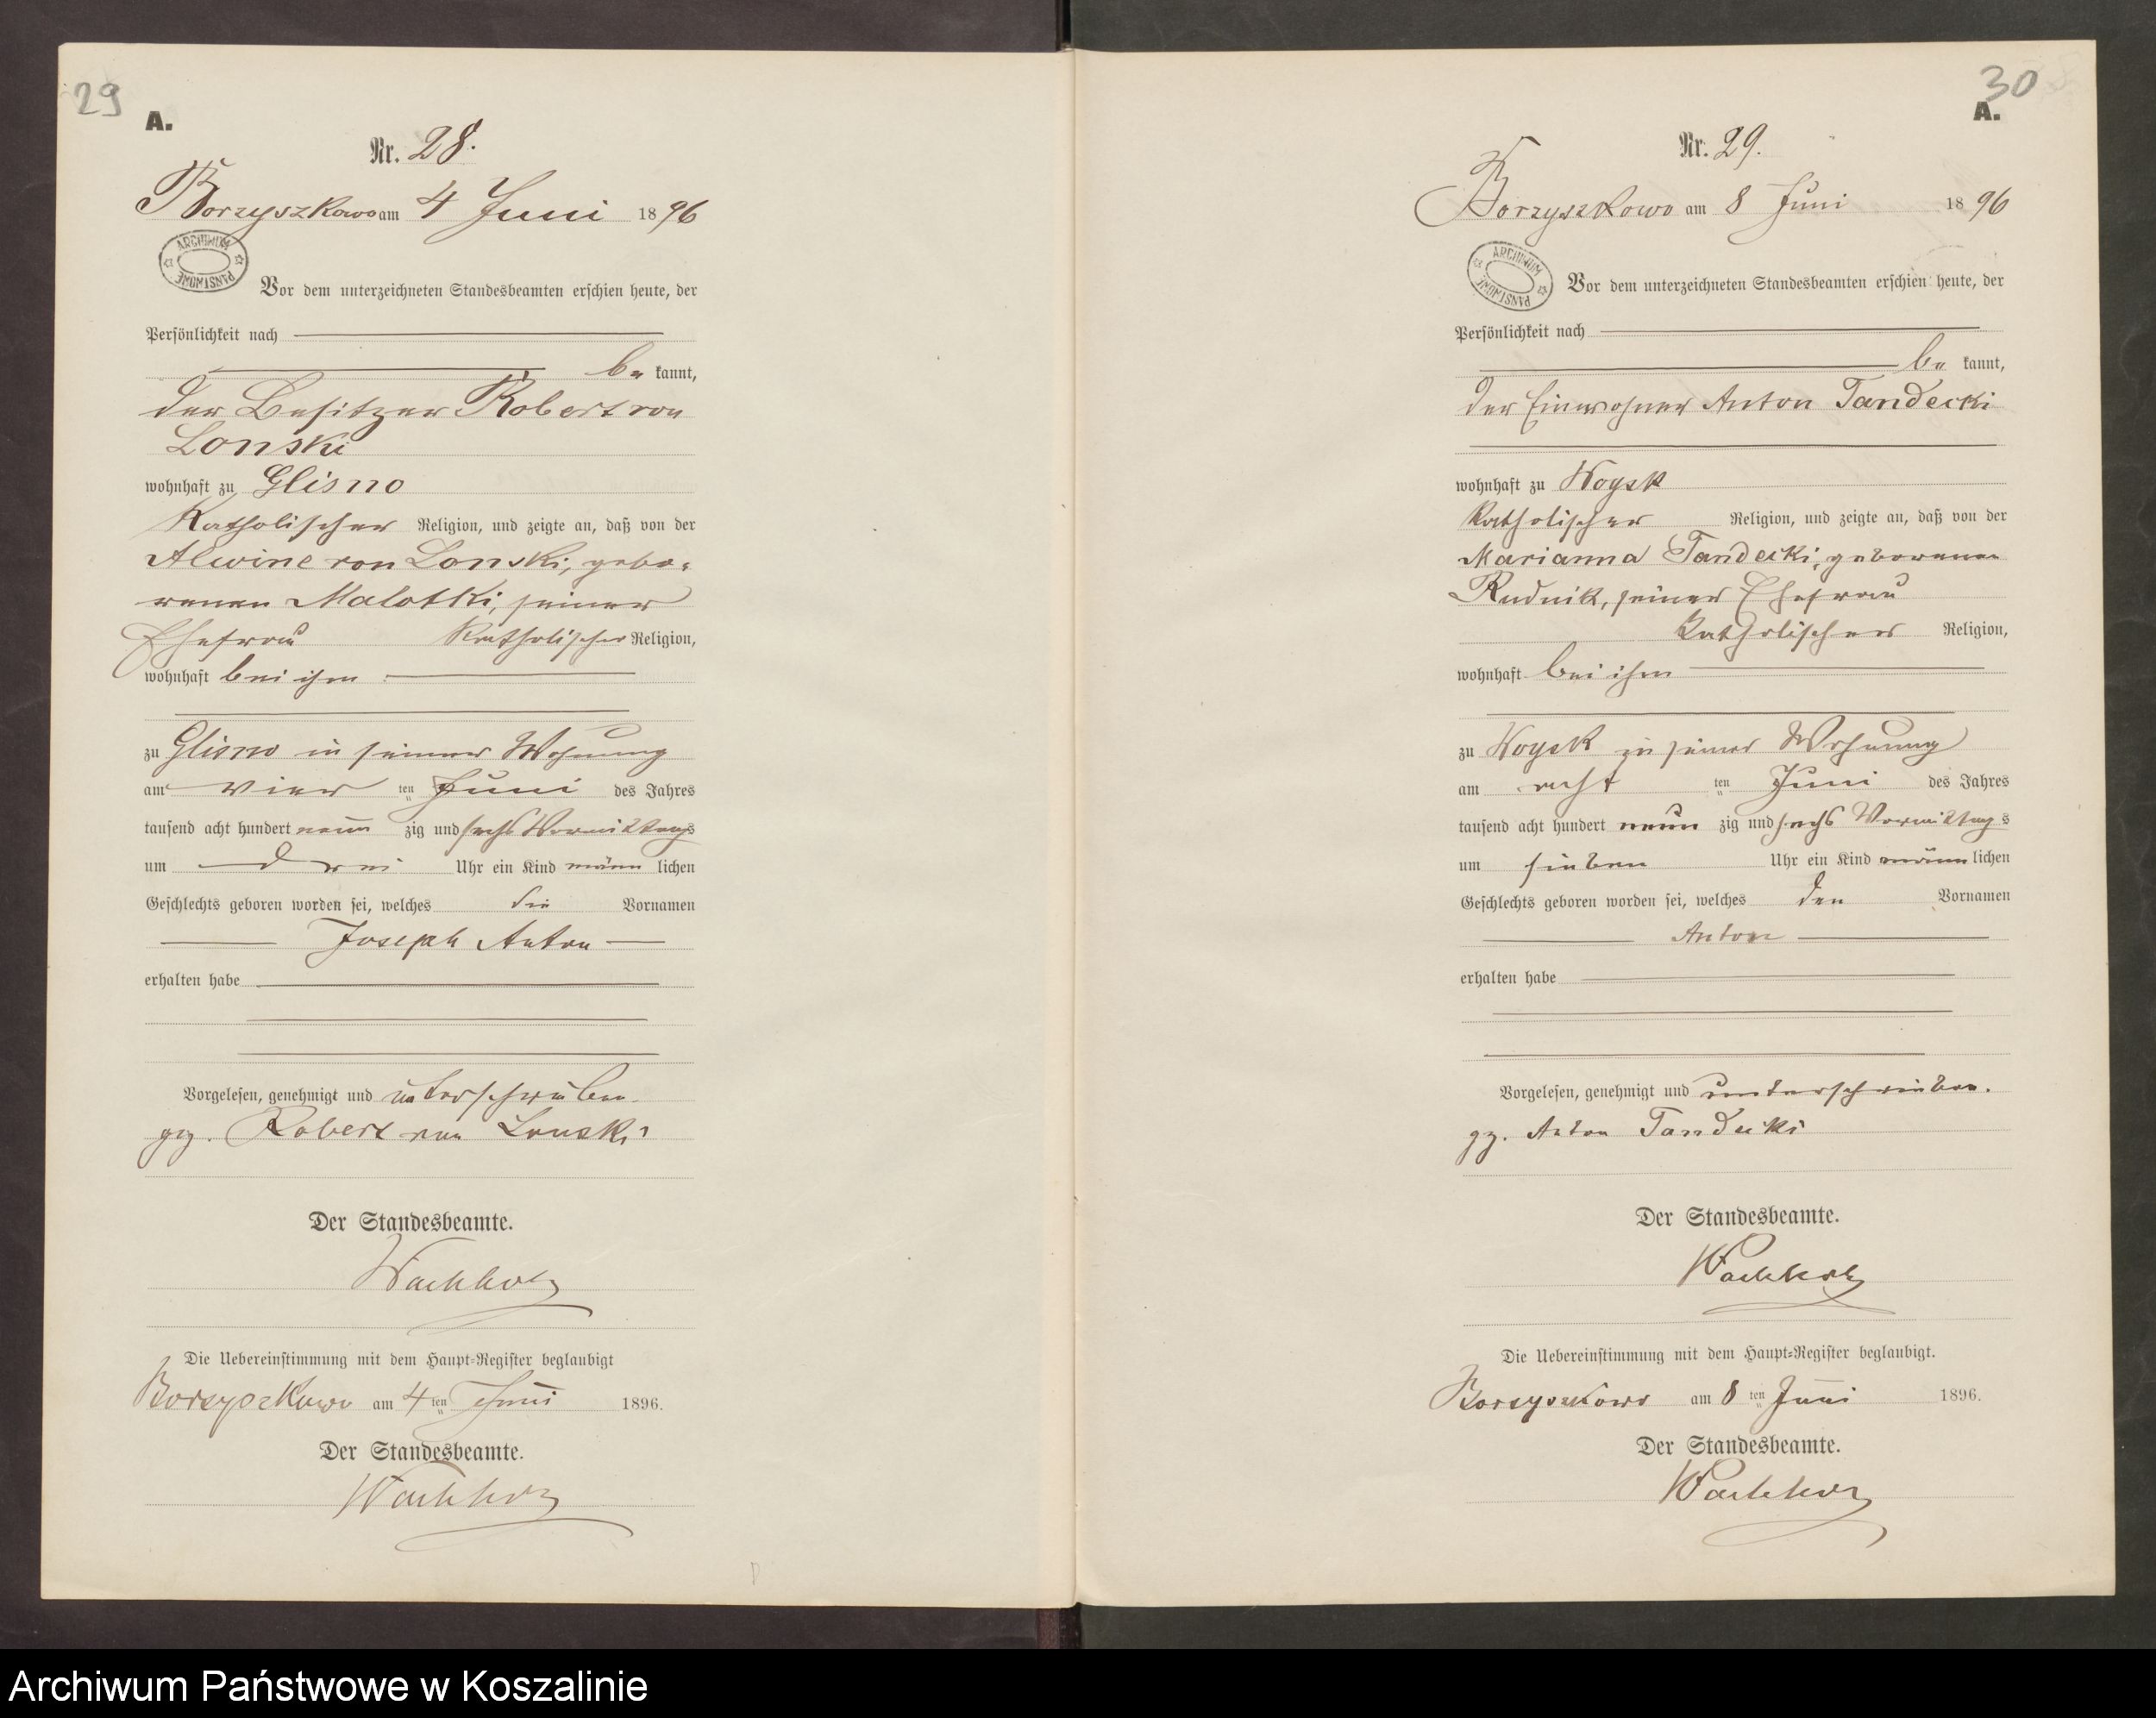 29
A.
Nr. 28.
Borzyszkowo am 4 Juni 1896
ARCHIWUM PAŃSTWOWE
Vor dem unterzeichneten Standesbeamten erschien heute, der
Persönlichkeit nach
be kannt,
der Besitzer Robert von
Lonski
wohnhaft zu Glisno
Katholischer Religion, und zeigte an, daß von der
Alwine von Lonski, gebo-
renen Malotki, seiner
Ehefrau Katholischer Religion,
wohnhaft bei ihm
zu Glisno in seiner Wohnung
am vier ten Juni des Jahres
tausend acht hundert neun zig und sechs Vormittags
um drei Uhr ein Kind männ lichen
Geschlechts geboren worden sei, welches die Vornamen
Joseph Anton
erhalten habe
Vorgelesen, genehmigt und unterschrieben.
gz. Robert von Lonski
Der Standesbeamte.
Wachholz
Die Uebereinstimmung mit dem Haupt-Register beglaubigt
Borzyszkowo am 4 ten Juni 1896.
Der Standesbeamte.
Wachholz
30
A.
Nr. 29.
Borzyszkowo am 8 Juni 1896
ARCHIWUM PAŃSTWOWE
Vor dem unterzeichneten Standesbeamten erschien heute, der
Persönlichkeit nach
be kannt,
der Einwohner Anton Tandecki
wohnhaft zu Woysk
Katholischer Religion, und zeigte an, daß von der
Marianna Tandecki, geborenen
Rudnik, seiner Ehefrau
Katholischer Religion,
wohnhaft bei ihm
zu Woysk in seiner Wohnung
am acht ten Juni des Jahres
tausend acht hundert neun zig und sechs Vormittags
um sieben Uhr ein Kind männ lichen
Geschlechts geboren worden sei, welches den Vornamen
Anton
erhalten habe
Vorgelesen, genehmigt und unterschrieben.
gz. Anton Tandecki
Der Standesbeamte.
Wachholz
Die Uebereinstimmung mit dem Haupt-Register beglaubigt.
Borzyszkowo am 8 ten Juni 1896.
Der Standesbeamte.
Wachholz
Archiwum Państwowe w Koszalinie